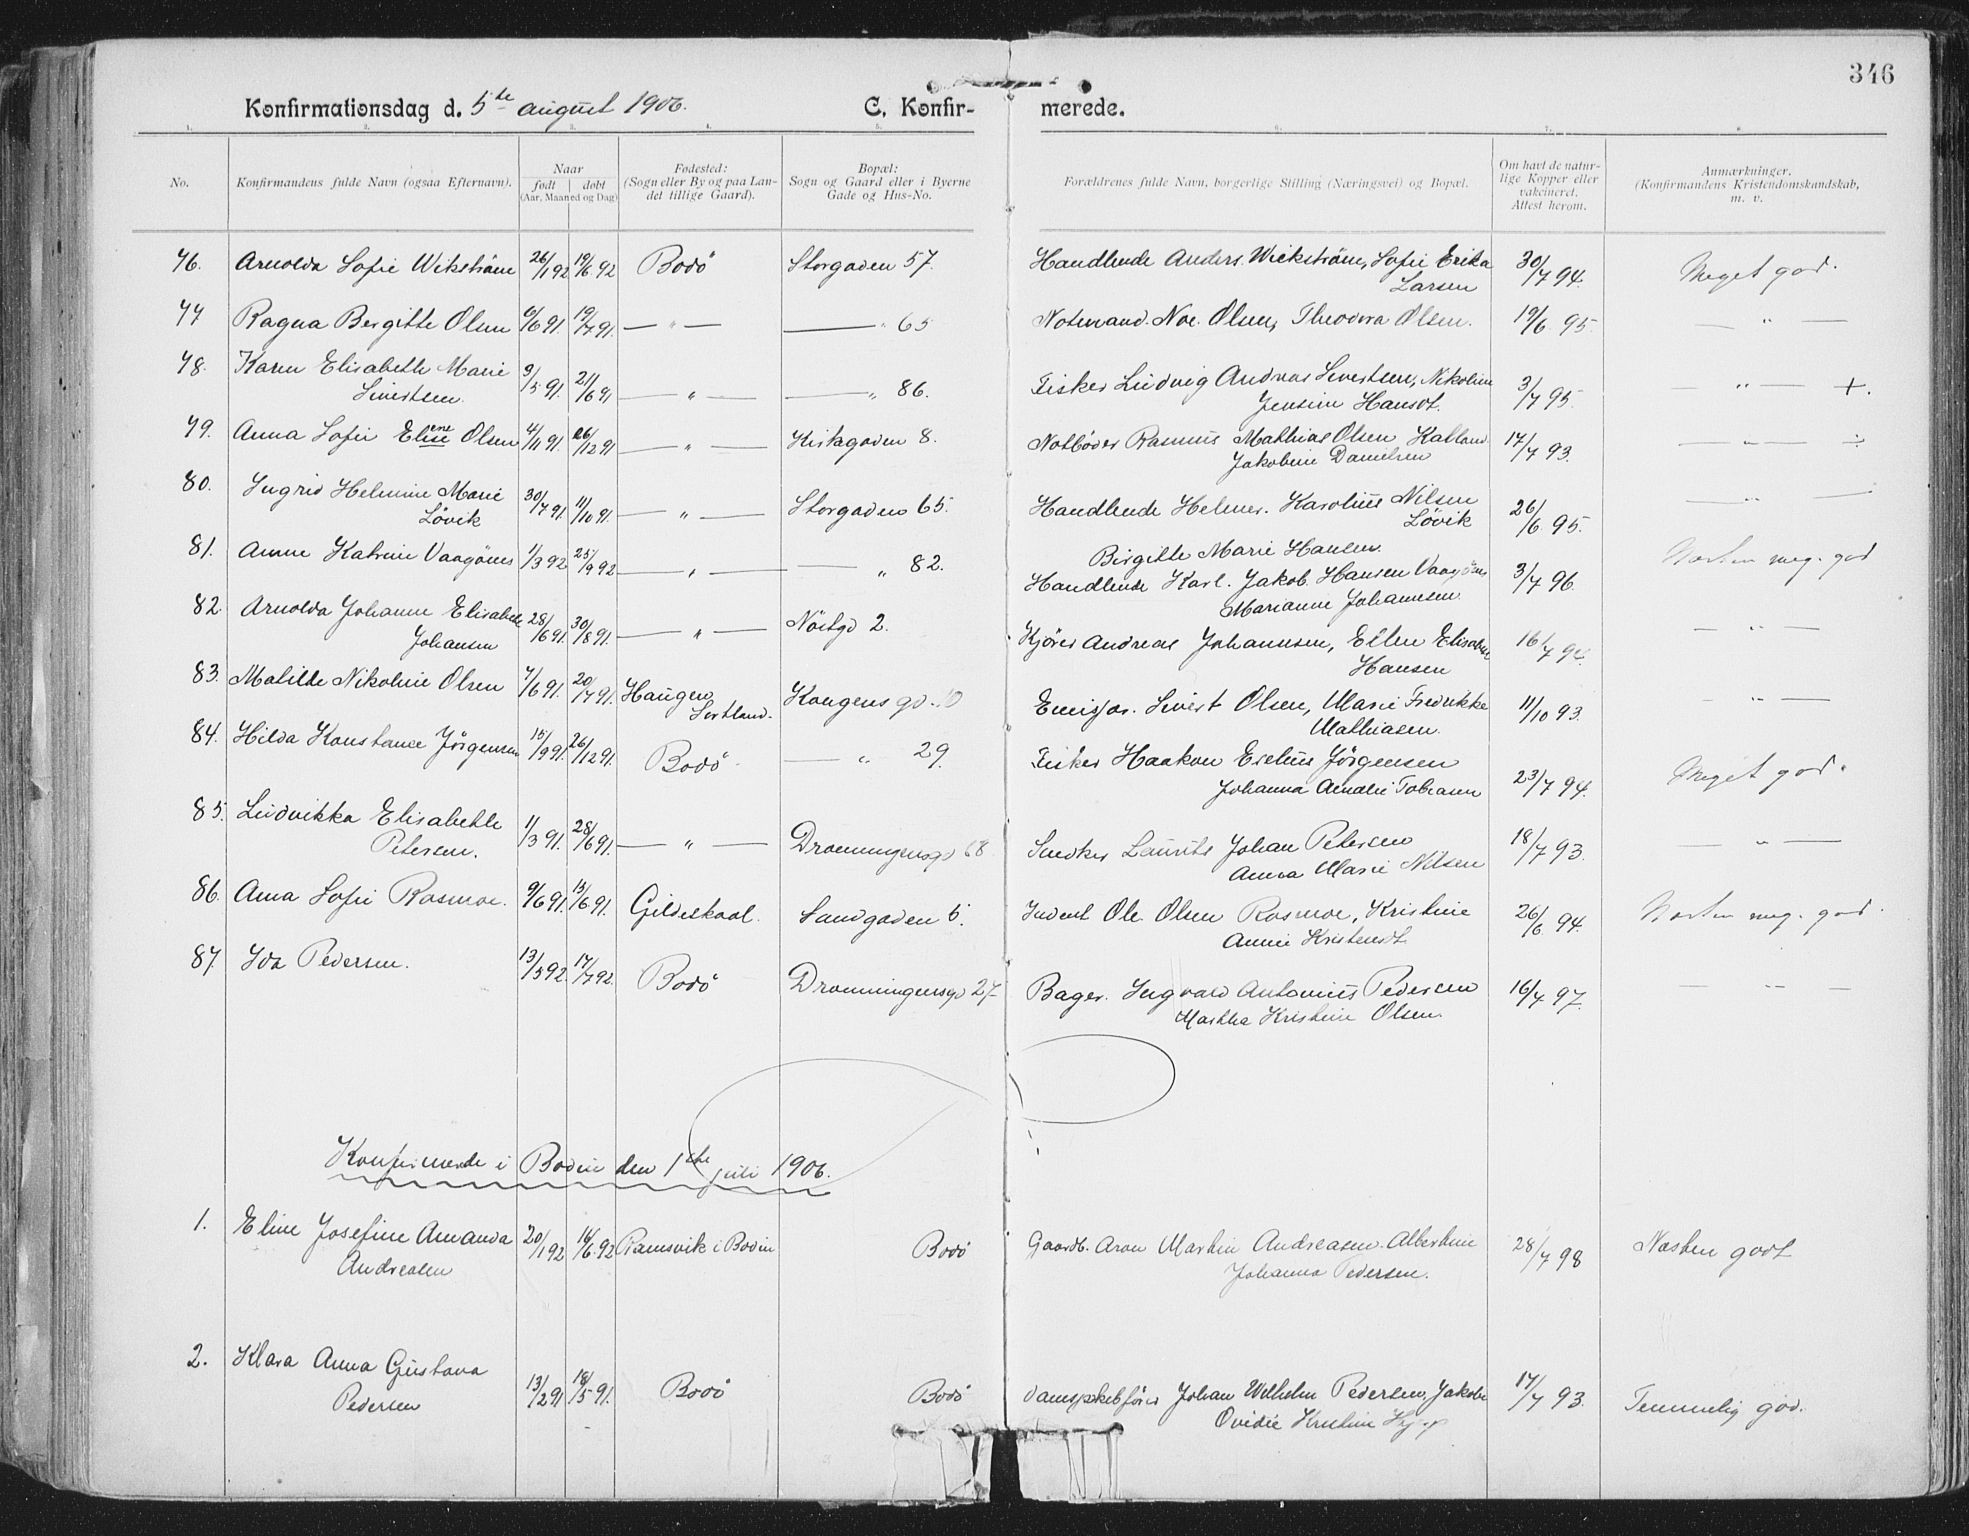 346
Konfirmationsdag d. 5te august 1906. C. Konfirmerede.
1. 2. 3. 4. 5. 6. 7. 8.
No. Konfirmandens fulde Navn (ogsaa Efternavn). Naar født | døbt (Aar, Maaned og Dag) Fødested: (Sogn eller By og paa Landet tillige Gaard). Bopæl: Sogn og Gaard eller i Byerne Gade og Hus-No. Forældrenes fulde Navn, borgerlige Stilling (Næringsvei) og Bopæl. Om havt de naturlige Kopper eller vakcineret. Attest herom. Anmærkninger. (Konfirmandens Kristendomskundskab, m. v.
76. Arnolda Sofie Wikström 26/1 92 19/6 92 Bodö Storgaden 57. Handlende Anders Wickström, Sofie Erika Larsen 30/7 94. Meget god.
77 Ragna Bergitte Olsen 6/6 91 19/7 91. — " — — " 65 Notmand Noe. Olsen, Theodora Olsen. 19/6 95. — " —
78. Karen Elisabeth Marie Sivertsen. 9/5 91. 21/6 91 — " — — " 86. Fisker Ludvig Andreas Sivertsen, Nikoline Jensine Hansdt. 3/7 95. — " — +.
79. Anna Sofie Eline Olsen 4/11 91. 26/12 91 — " — Kirkegaden 8. Notbøder Rasmus Mathias Olsen Jakobine Danielsen 17/7 93. — " —
80. Ingrid Helmine Marie Lövik 30/7 91. 11/10 91. — " — Storgaden 65. Handlende Helmer. Karolius Nilsen Lövik Birgitte Marie Hansen. 26/6 95. — " —
81. Anne Katrine Vaagönes 1/3 92 25/9 92 — " — — " 82. Handlende Karl. Jakob Hansen Vaagönes Marianne Johannesen. 3/7 96. Næsten meg. god
82. Arnolda Johanne Elisabeth Johansen 28/6 91. 30/8 91. — " — Nöstgd 2. Kjörer Andreas Johannesen, Ellen Elisabet Hansen 16/7 94. — " —
83. Matilde Nikoline Olsen 7/6 91. 20/7 91. Haugen Sortland. Kongens gd. 10 Emisjær. Sivert Olsen, Marie Fredrikke Mathiasen. 11/10 93. — " —
84. Hilda Konstance Jörgensen 15/9 91. 26/12 91. Bodö — " 29. Fisker Haakon Eselius Jörgensen Johanna Amalie Tobiasen 23/7 94. Meget god.
85. Ludvikka Elisabethe Petersen. 1/3 91. 28/6 91. — " — Dronningensgd 68 Snedker Laurits Johan Petersen Anna Marie Nilsen 18/7 93. — " —
86. Anna Sofie Rosmoe. 9/6 91. 13/6 91. Gildeskaal. Sandgaden 5. Indent Ole Olsen Rosmoe, Kristine Annie Kristensdt. 26/6 94. Næsten meg. god.
87. Ida Pedersen. 13/5 92. 17/7 92. Bodö Dronningensgd 27 Bager. Ingvald Antonius Pedersen Martha Kristine Olsen. 16/7 97. — " —
Konfirmerede i Bodin den 1ste juli 1906.
1. Eline Josefine Amanda Andreasen 20/1 92 16/6 92 Ramsvik i Bodin Bodö Gaardb. Aron Martin Andreasen. Albertine Johanna Pedersen. 28/7 98 Næsten godt
2. Klara Anna Gustava Pedersen 13/2 91 18/5 91. Bodö Bodö Dampskibsförer Johan Wilhelm Pedersen, Jakobe Ovidie Kristine 17/7 93. Temmelig god.